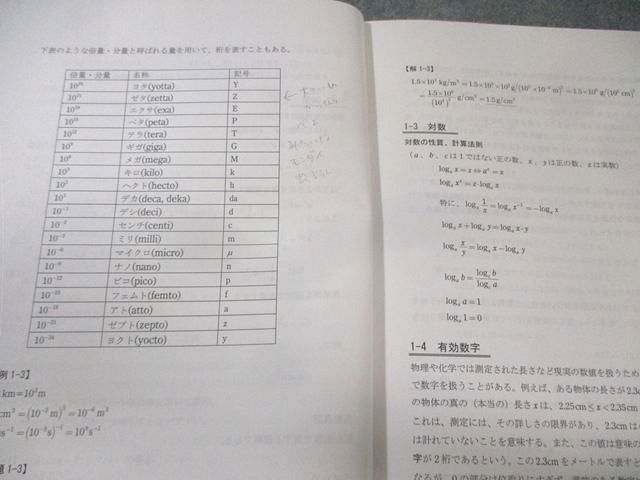 下表のような倍量・分量と呼ばれる量を用いて、桁を表すこともある。
倍量・分量 名称 記号
10²⁴ ヨタ(yotta) Y
10²¹ ゼタ(zetta) Z
10¹⁸ エクサ(exa) E
10¹⁵ ペタ(peta) P
10¹² テラ(tera) T
10⁹ ギガ(giga) G
10⁶ メガ(mega) M
10³ キロ(kilo) k
10² ヘクト(hecto) h
10¹ デカ(deca, deka) da
10⁻¹ デシ(deci) d
10⁻² センチ(centi) c
10⁻³ ミリ(milli) m
10⁻⁶ マイクロ(micro) μ
10⁻⁹ ナノ(nano) n
10⁻¹² ピコ(pico) p
10⁻¹⁵ フェムト(femto) f
10⁻¹⁸ アト(atto) a
10⁻²¹ ゼプト(zepto) z
10⁻²⁴ ヨクト(yocto) y
例 1-3】
km=10³m
cm²=(10⁻²m)²=10⁻⁴m²
s⁻¹=(10⁻⁹s)⁻¹=10⁹s⁻¹
1-3】
【解 1-3】
1.5×10³ kg/m³=1.5×10³×10³g/(10²×10⁻²m)³=1.5×10⁶g/(10²cm)³
=1.5×10⁶/(10²)³ g/cm³=1.5g/cm³
1-3 対数
対数の性質、計算法則
(a、b、cは1ではない正の数、x、yは正の数、zは実数)
logₐx=z⇔aᶻ=x
logₐxᶻ=z·logₐx
特に、logₐ1/x=logₐx⁻¹=−logₐx
logₐx+logₐy=logₐx·y
logₐx/y=logₐx−logₐy
logₐb=log꜀b/log꜀a
logₐa=1
logₐ1=0
1-4 有効数字
物理や化学では測定された長さなど現実の数値を扱うため
で数字を扱うことがある。例えば、ある物体の長さが2.3c
の物体の真の（本当の）長さxは、2.25cm≤x<2.35cm
これは、測定には、その詳しさの限界があり、2.3cmは
は計れていないことを意味する。また、この値は意味の
字が2桁であるという。この2.3cmをメートルで表すと